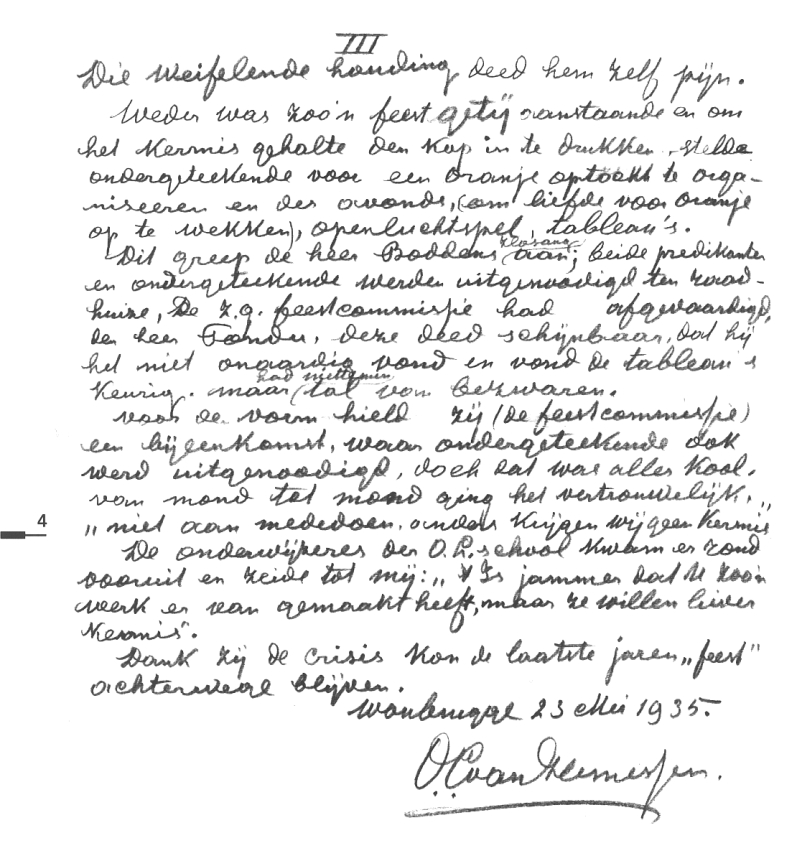 III
Die weifelende houding deed hem zelf pijn.
Weder was zoo'n feest getij aanstaande en om
het Kermis gehalte den kop in te drukken, stelde
ondergeteekende voor een oranje optocht te orga-
niseeren en des avonds, (om liefde voor oranje
op te wekken), openluchtspel, tableau's.
Dit greep de heer Boddens aan; beide predikanten
en ondergeteekende werden uitgenoodigd ten raad-
huize, De z.g. feestcommissie had afgevaardigd,
den heer deze deed schijnbaar, dat hij
het niet onaardig vond en vond de tableau's
keurig. maar (had niettemin tal van bezwaren.
voor de vorm hield zij (de feestcommissie)
een bijeenkomst, waar ondergeteekende ook
werd uitgenoodigd, doch dat was alles kool.
van mond tot mond ging het vertrouwelijk. „
„ niet aan mededoen. anders krijgen wij geen Kermis
4
De onderwijzeres der O.L. school kwam er rond
vooruit en zeide tot mij: „ 't Is jammer dat U zoo'n
werk er van gemaakt heeft, maar ze willen liever
Kermis".
Dank zij de crisis kon de laatste jaren „feest"
achterwege blijven.
Woubrugge 23 Mei 1935.